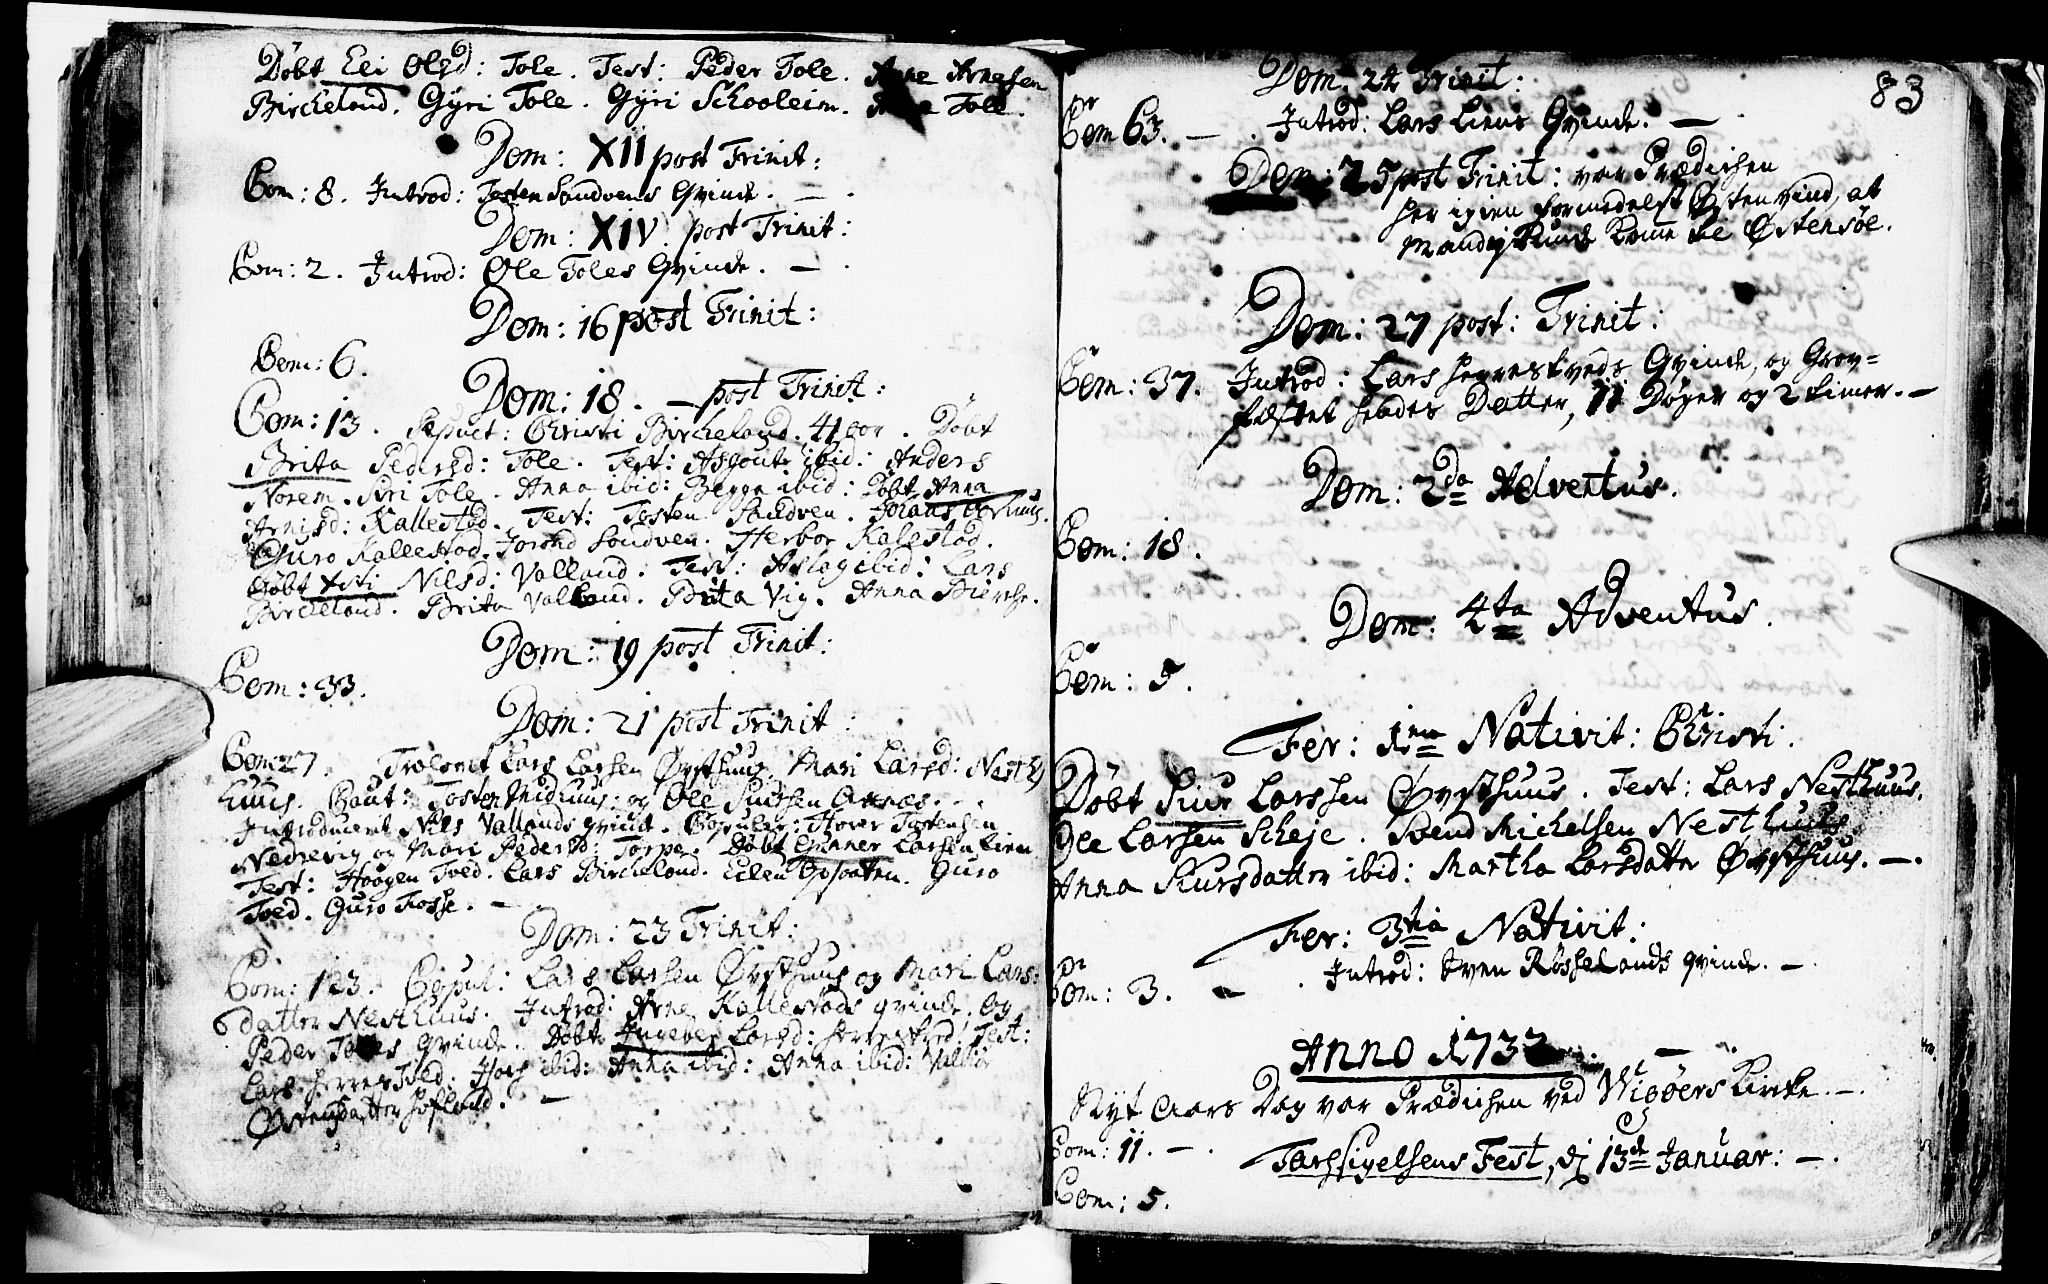 Døbt Eli Olsd: Tole. Test: Peder Tole. Anne Arnesen
Bircheland. Gyri Tole. Gyri Schaaleim. Tole.
Dom: XII post Trinit:
Com: 8. Introd: Tosten Sandvens Qvinde. —.
Dom: XIV. post Trinit:
Com: 2. Introd: Ole Toles Qvinde. —.
Dom: 16 post Trinit:
Com: 6.
Dom: 18. — post Trinit:
Com: 13. Sepult: Christi Bircheland. 41 aar. Døbt
Brita Pedersd: Tole. Test: Asgout ibid: Anders
Norem. Siri Tole. Anna ibid: Begga ibid: Døbt Anna
Arnisd: Kallestad. Test: Tosten Sandven. Johans
Guro Kallestad. Jorond Sandven. Herbor Kalestad.
Døbt Nilsd: Valland. Test: Aslag ibid: Lars
Bircheland. Brita Valland. Brita Vig. Anna
Dom: 19 post Trinit:
Com: 33.
Dom: 21 post Trinit:
Com: 27. Trolovet Lars Larsen Øvsthuus. Mari Larsd: Nest
huus. Caut: Tosten Midhuus: og Ole Siursen Axnæs.
Introduceret Nils Vallands qvinde. Copuler: Tostensen
Nedrevig og Mari Pedersd: Torpe. Døbt Larsen Lien
Test: Haagen Tved. Lars Bircheland. Elen Opsaaten. Guro
Tved. Guro Fosse. —
Dom: 23 Trinit:
Com: 123. Copul: Lars Larsen Øvsthuus og Mari Lars:
datter Nesthuus. Introd: Arne Kallestads qvinde. og
Peder Toles qvinde. Døbt Ingebor Larsd: Test:
Lars ibid: Anna ibid: Anna ibid:
—
83
Dom. 24 Trinit:
Com 63. —. Introd: Lars Liens Qvinde. —
Dom: 25 post Trinit: var Prædichen
her igien formedelst Østenvind, at
mand ej kunde komme til Østensøe.
Dom: 27 post: Trinit:
Com: 37. Introd: Lars Herrestveds Qvinde, og Grav=
fæstet hendes Datter, 11 Døger og 2 timer. —
Dom: 2da Adventus.
Com: 18.
Dom: 4ta Adventus.
Com: 5.
Fer: 1ma Nativit: Christi.
Døbt Siur Larssen Øvsthuus. Test: Lars Nesthuus.
Ole Larsen Scheje. Svend Michelsen Nesthuus
Anna Siursdatter ibid: Martha Larsdatter Øvsthuus. —.
Fer: 3tia Nativit:
Com: 3. —. Introd: Sven Røsselands qvinde. —.
Anno 1732. —
Nyt Aars Dag var Prædichen ved Wigøers Kirke. —.
Com: 11. —.
Tachsigelsens Fest, d 13de Januar: —.
Com: 5.